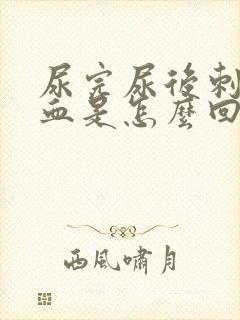 尿完尿後刺
血是怎麼回
西風嘯月